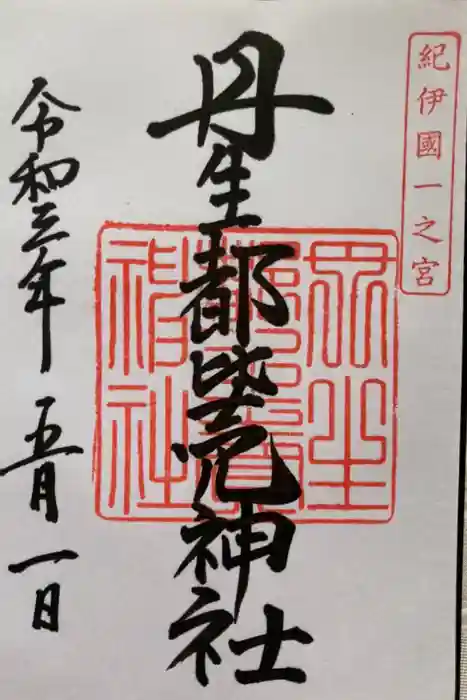 紀伊國一之宮
丹生都比売神社
丹生
神社
令和三年 五月一日